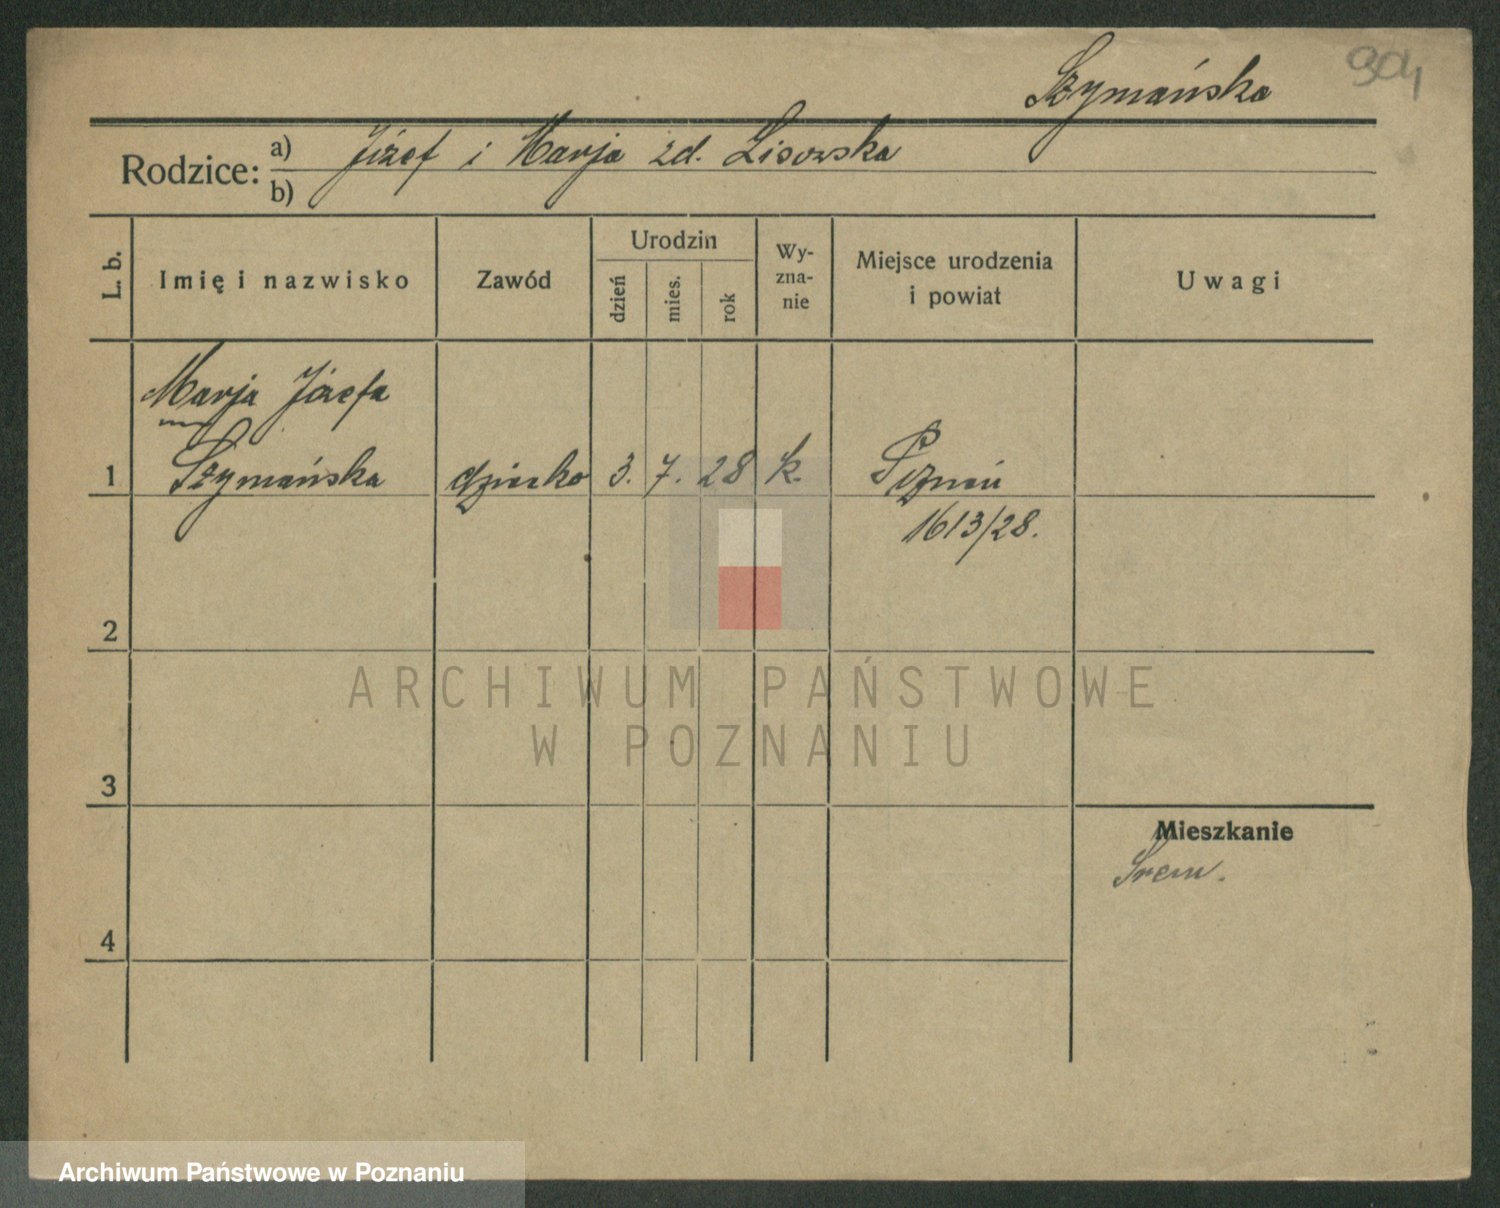 Szymańska
904
Rodzice: a) Józef i Marja zd. Lisowska
b)
L. b.
Imię i nazwisko
Zawód
Urodzin
dzień
mies.
rok
Wy-
zna-
nie
Miejsce urodzenia
i powiat
Uwagi
Marja Józefa
1 Szymańska dziecko 3. 7. 28 k. Poznań
1613/28.
2
3
4
Mieszkanie
Śrem.
ARCHIWUM PAŃSTWOWE
W POZNANIU
Archiwum Państwowe w Poznaniu